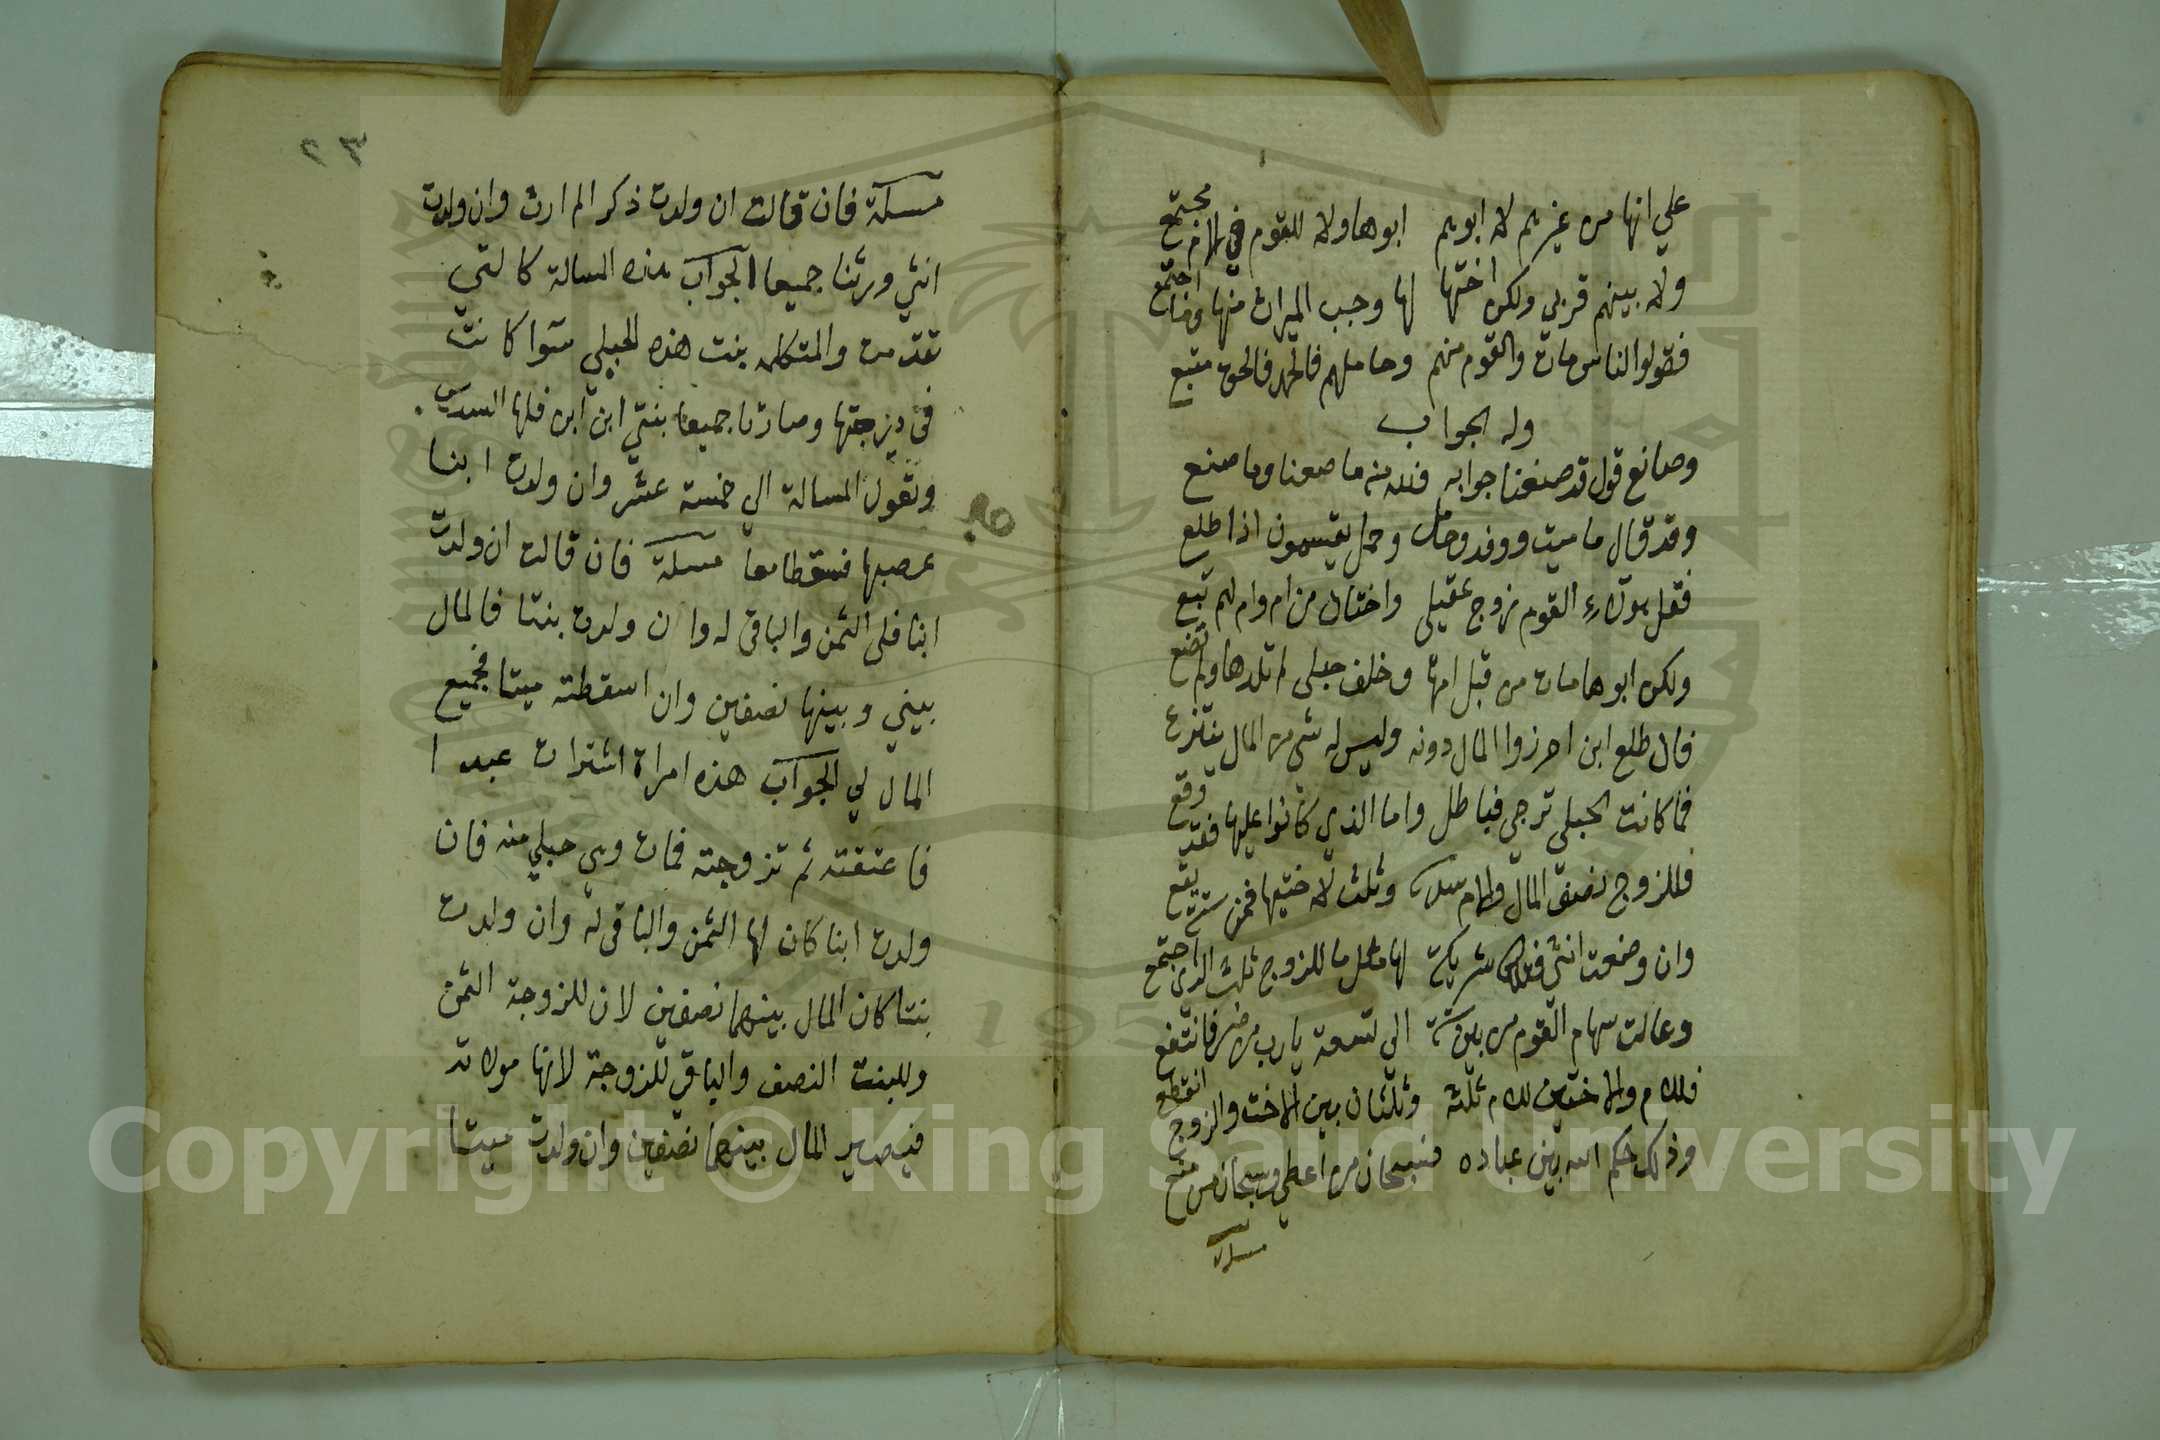 علي انها من غيرهم لا ابوهم ابوها ولا للقوم في الام مجتمع
ولا بينهم قربي ولكن اختها لها وجب الميراث منها اجتمع
فقولوا الناس مات والقوم منهم وحاملهم فالحق متبع
وله الجواب
وصانع قول قد صنعنا جوابه فلله منه ما صنعنا وما صنع
وقد قال ما ميت ووفد وحامل وحمل يقسمون اذا طلع
فقل هولاء القوم زوج عقيلي واختان من ام وام لهم تبع
ولكن ابوها مات من قبل امها وخلف حبلي لم تلدها ولم تضع
فان طلع ابن احرزوا المال دونه وليس له شي من المال ينتزع
فما كانت الحبلي ترجي فباطل واما الذي كانوا عليها فقد وقع
فللزوج نصف المال وللام سدس وثلث لاختيها فمن ستة يقع
وان وضعت انثي فتلك شريكة لها مثل ما للزوج ثلث الذي اجتمع
وعالت سهام القوم من بين ستة الي تسعة يا رب فانتفع
فللام والاختين للام ثلثه وثلثان بين الاخت والزوج انقطع
وذلك حكم الله بين عباده فسبحان من اعطي وسبحان من منع
مسئلة
٢٣
مسئلة فان قالت ان ولدت ذكرا لم ارث وان ولدت
انثي ورثنا جميعا الجواب هذه المسالة كالتي
تقدمت والمتكلمه بنت هذه الحبلي سوا كانت
في درجتها وصارتا جميعا بنتي ابن ابن فلها السدس
وتعول المسالة الي خمسة عشر وان ولدت ابنا
عصبها فسقطا معا مسئلة فان قالت ان ولدت
ابنا فلي الثمن والباقي له وان ولدت بنتا فالمال
بيني وبينها نصفين وان اسقطته ميتا فجميع
المال لي الجواب هذه امراة اشترات عبدا
فاعتقته ثم تزوجته فمات وهي حبلي منه فان
ولدت ابنا كان لها الثمن والباقي له وان ولدت
بنتا كان المال بينهما نصفين لان للزوجة الثمن
وللبنت النصف والباقي للزوجة لانها مولاته
فيصير المال بينهما نصفين وان ولدت ميتا
Copyright © King Saud University